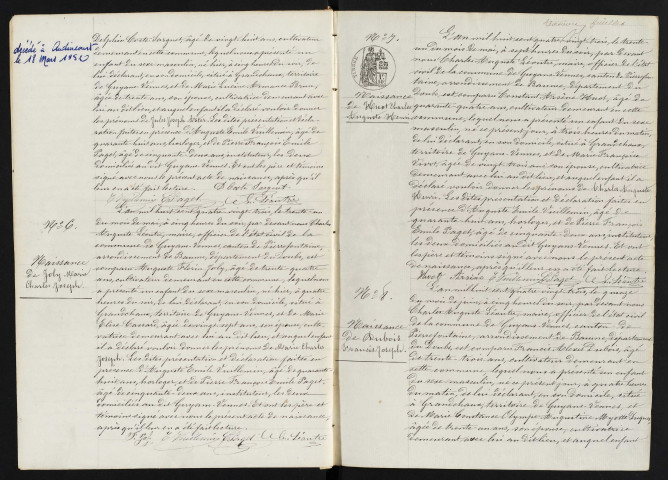 Décédé à Audincourt
le 18 Mars 1950
Delphin Coste Sarguet, âgé de vingt huit ans, cultivateur
demeurant en cette commune, lequel nous a présenté un
enfant du sexe masculin, né hier, à cinq heures du soir, de
lui déclarant, en son domicile, situé à Grandchaux, territoire
de Guyans Vennes, et de Marie
âgée de trente ans, son épouse, cultivatrice demeurant avec
lui au dit lieu, et auquel enfant il a déclaré vouloir donner
les prénoms de Jules Joseph. Les dites présentation et décla-
ration faites en présence d'Auguste Emile Vuillemin, âgé de
quarante huit ans, horloger, et de Pierre François Emile
Paget, âgé de cinquante deux ans, instituteur, les deux
domiciliés au dit Guyans Vennes. Et ont les père et témoins
signé avec nous le présent acte de naissance, après qu'il
leur en a été fait lecture.
N° 26.
Naissance
de Joly, Marie
Charles Joseph.
L'an mil huit cent quatre vingt trois, le trente un
du mois de mai, à cinq heures du soir, par devant nous Charles
Auguste Liéntre, maire, officier de l'état civil de la
commune de Guyans Vennes, canton de Pierrefontaine,
arrondissement de Baume, département du Doubs, est
comparu Auguste Florin Joly, âgé de trente quatre
ans, cultivateur demeurant en cette commune, lequel nous
a présenté un enfant du sexe masculin, né hier, à quatre
heures du soir, de lui déclarant, en son domicile, situé à
Grandchaux, territoire de Guyans Vennes, et de Marie
Elise, âgée de vingt sept ans, son épouse, culti-
vatrice demeurant avec lui au dit lieu, et auquel enfant
il a déclaré vouloir donner les prénoms de Marie Charles
Joseph. Les dites présentation et déclaration faites en
présence d'Auguste Emile Vuillemin, âgé de quarante
huit ans, horloger, et de Pierre François Emile Paget,
âgé de cinquante deux ans, instituteur, les deux
domiciliés au dit Guyans Vennes. Et ont les père et
témoins signé avec nous le présent acte de naissance,
après qu'il leur en a été fait lecture.
N° 27.
Naissance
de Huot Charles
Auguste Henri
L'an mil huit cent quatre vingt trois, le trente
un du mois de mai, à sept heures du soir, par devant
nous Charles Auguste Liéntre, maire, officier de l'état
civil de la commune de Guyans Vennes, canton de Pierrefon-
taine, arrondissement de Baume, département du
Doubs, est comparu Constant Arsène Huot, âgé de
quarante quatre ans, cultivateur demeurant en cette
commune, lequel nous a présenté un enfant du sexe
masculin, né ce présent jour, à trois heures du matin,
de lui déclarant, en son domicile, situé à Grandchaux,
territoire de Guyans Vennes, et de Marie Françoise
Vivot, âgée de vingt neuf ans, son épouse, cultivatrice
demeurant avec lui au dit lieu, et auquel enfant il a
déclaré vouloir donner les prénoms de Charles Auguste
Henri. Les dites présentation et déclaration faites en
présence d'Auguste Emile Vuillemin, âgé de
quarante huit ans, horloger, et de Pierre François
Emile Paget, âgé de cinquante deux ans, instituteur,
les deux domiciliés au dit Guyans Vennes. Et ont
les père et témoins signé avec nous le présent acte
de naissance, après qu'il leur en a été fait lecture.
N° 28.
Naissance
de Dubois
Joseph.
L'an mil huit cent quatre vingt trois, le quinze
du mois de juin, à cinq heures du soir, par devant nous
Charles Auguste Liéntre, maire, officier de l'état civil
de la commune de Guyans Vennes, canton de
Pierrefontaine, arrondissement de Baume, département
du Doubs, est comparu Dubois, âgé
de trente trois ans, cultivateur demeurant en
cette commune, lequel nous a présenté un enfant
du sexe masculin, né ce présent jour, à quatre heures
du matin, de lui déclarant, en son domicile, situé
à Grandchaux, territoire de Guyans Vennes, et
de Marie Constance Olympe Augustine
âgée de trente un ans, son épouse, cultivatrice
demeurant avec lui au dit lieu, et auquel enfant